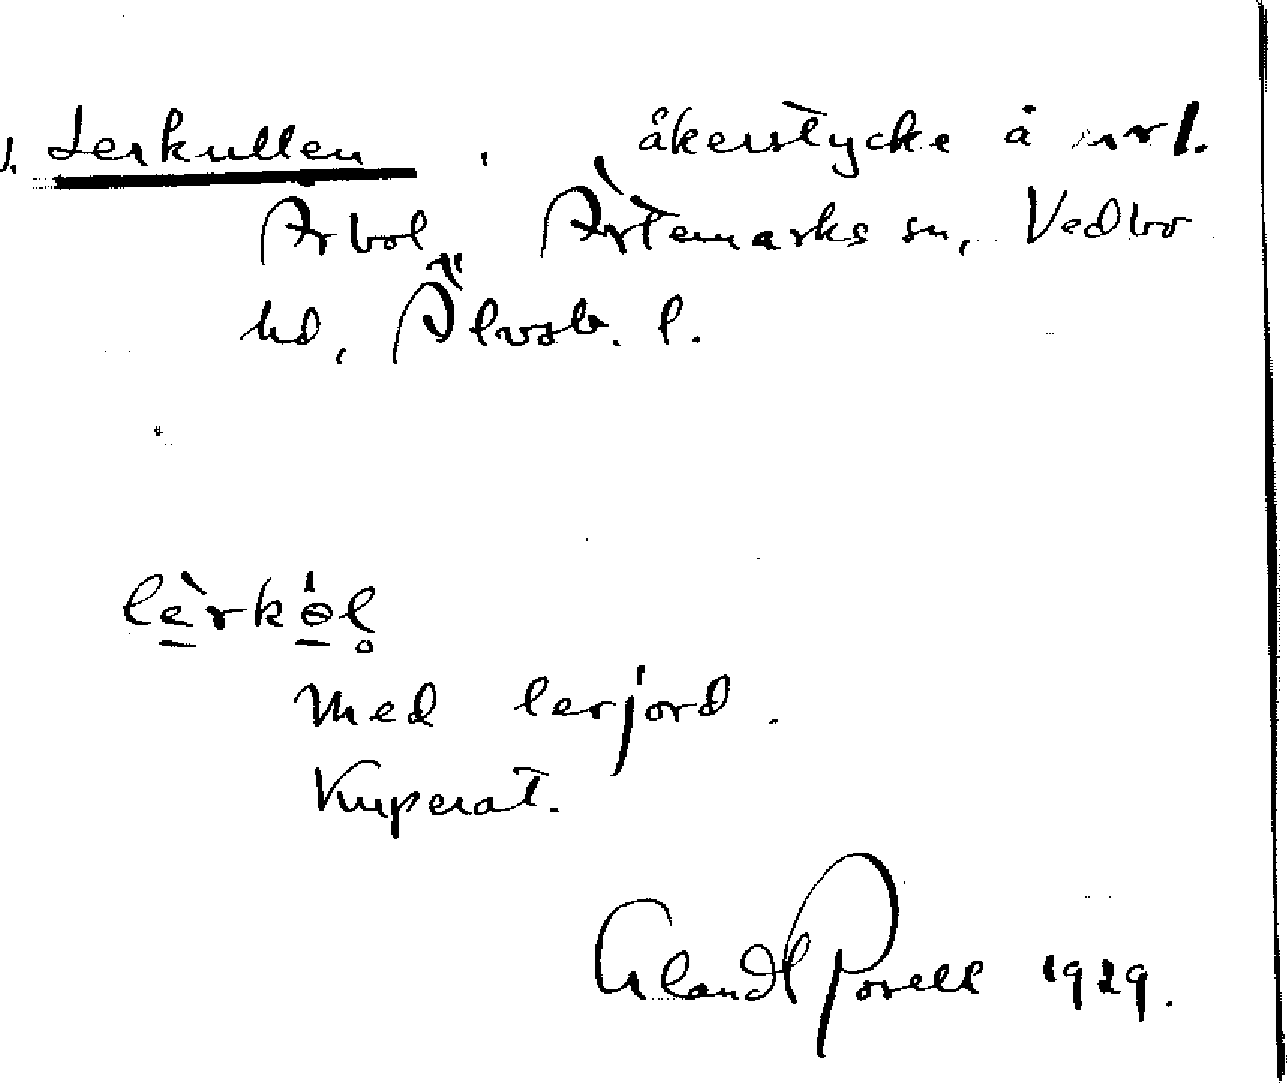 1. Lerkullen, åkerstycke å nr 1.
Årbol, Ärtemarks sn, Vedbo
hd, Älvsb. l.
lèrkө́l̥
Med lerjord.
Kuperat.
Erlandh Rosell 1929.